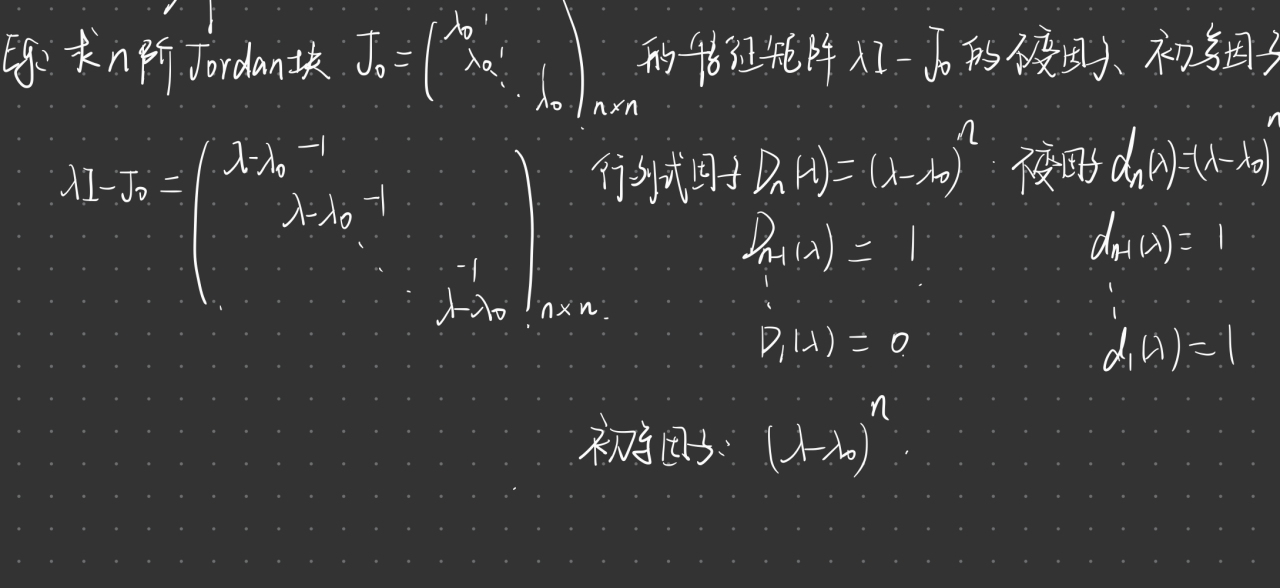 例: 求n阶Jordan块 J₀ = (λ₀ 1 λ₀ 1 ⋱ λ₀)n×n 的特征矩阵 λI - J₀ 的不变因子、初等因子
λI - J₀ = (λ-λ₀ -1 λ-λ₀ -1 ⋱ -1 λ-λ₀)n×n. 行列式因子 Dₙ(λ) = (λ-λ₀)ⁿ 不变因子 dₙ(λ) = (λ-λ₀)ⁿ
Dₙ₋₁(λ) = 1 dₙ₋₁(λ) = 1
⋮ ⋮
D₁(λ) = 0 d₁(λ) = 1
初等因子: (λ-λ₀)ⁿ.